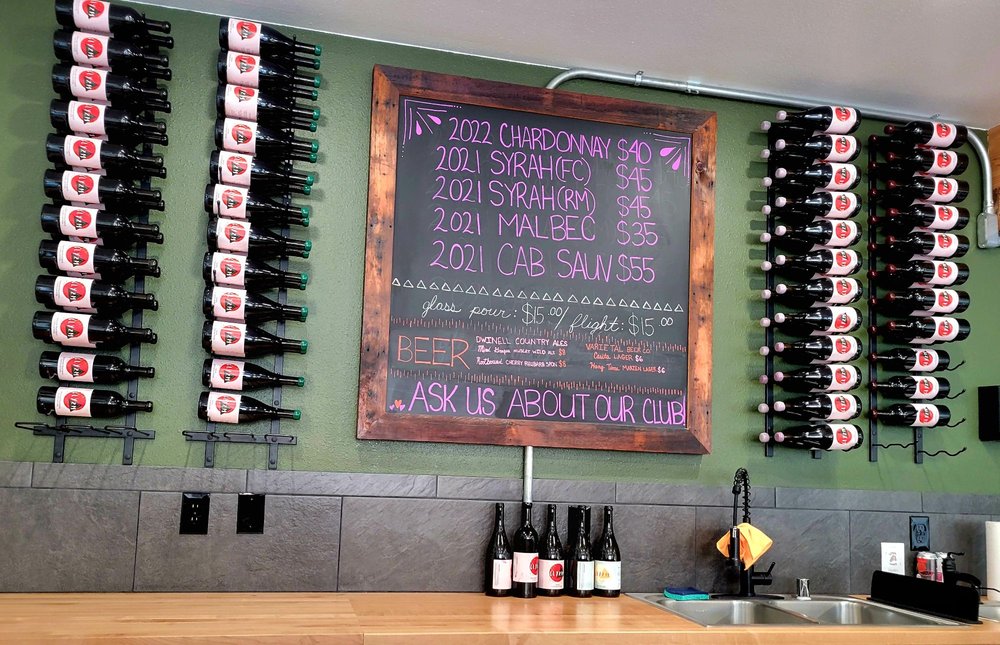 2022 CHARDONNAY $40
2021 SYRAH (FC) $45
2021 SYRAH (RM) $45
2021 MALBEC $35
2021 CAB SAUV $55
glass pour: $15.00/ flight: $15.00
BEER
DWINELL COUNTRY ALES
MUSCAT WILD ALE $8
CHERRY RHUBARB SPON $8
VARIETAL BEER CO
LAGER $6
MARZEN LAGER $6
ASK US ABOUT OUR CLUB!